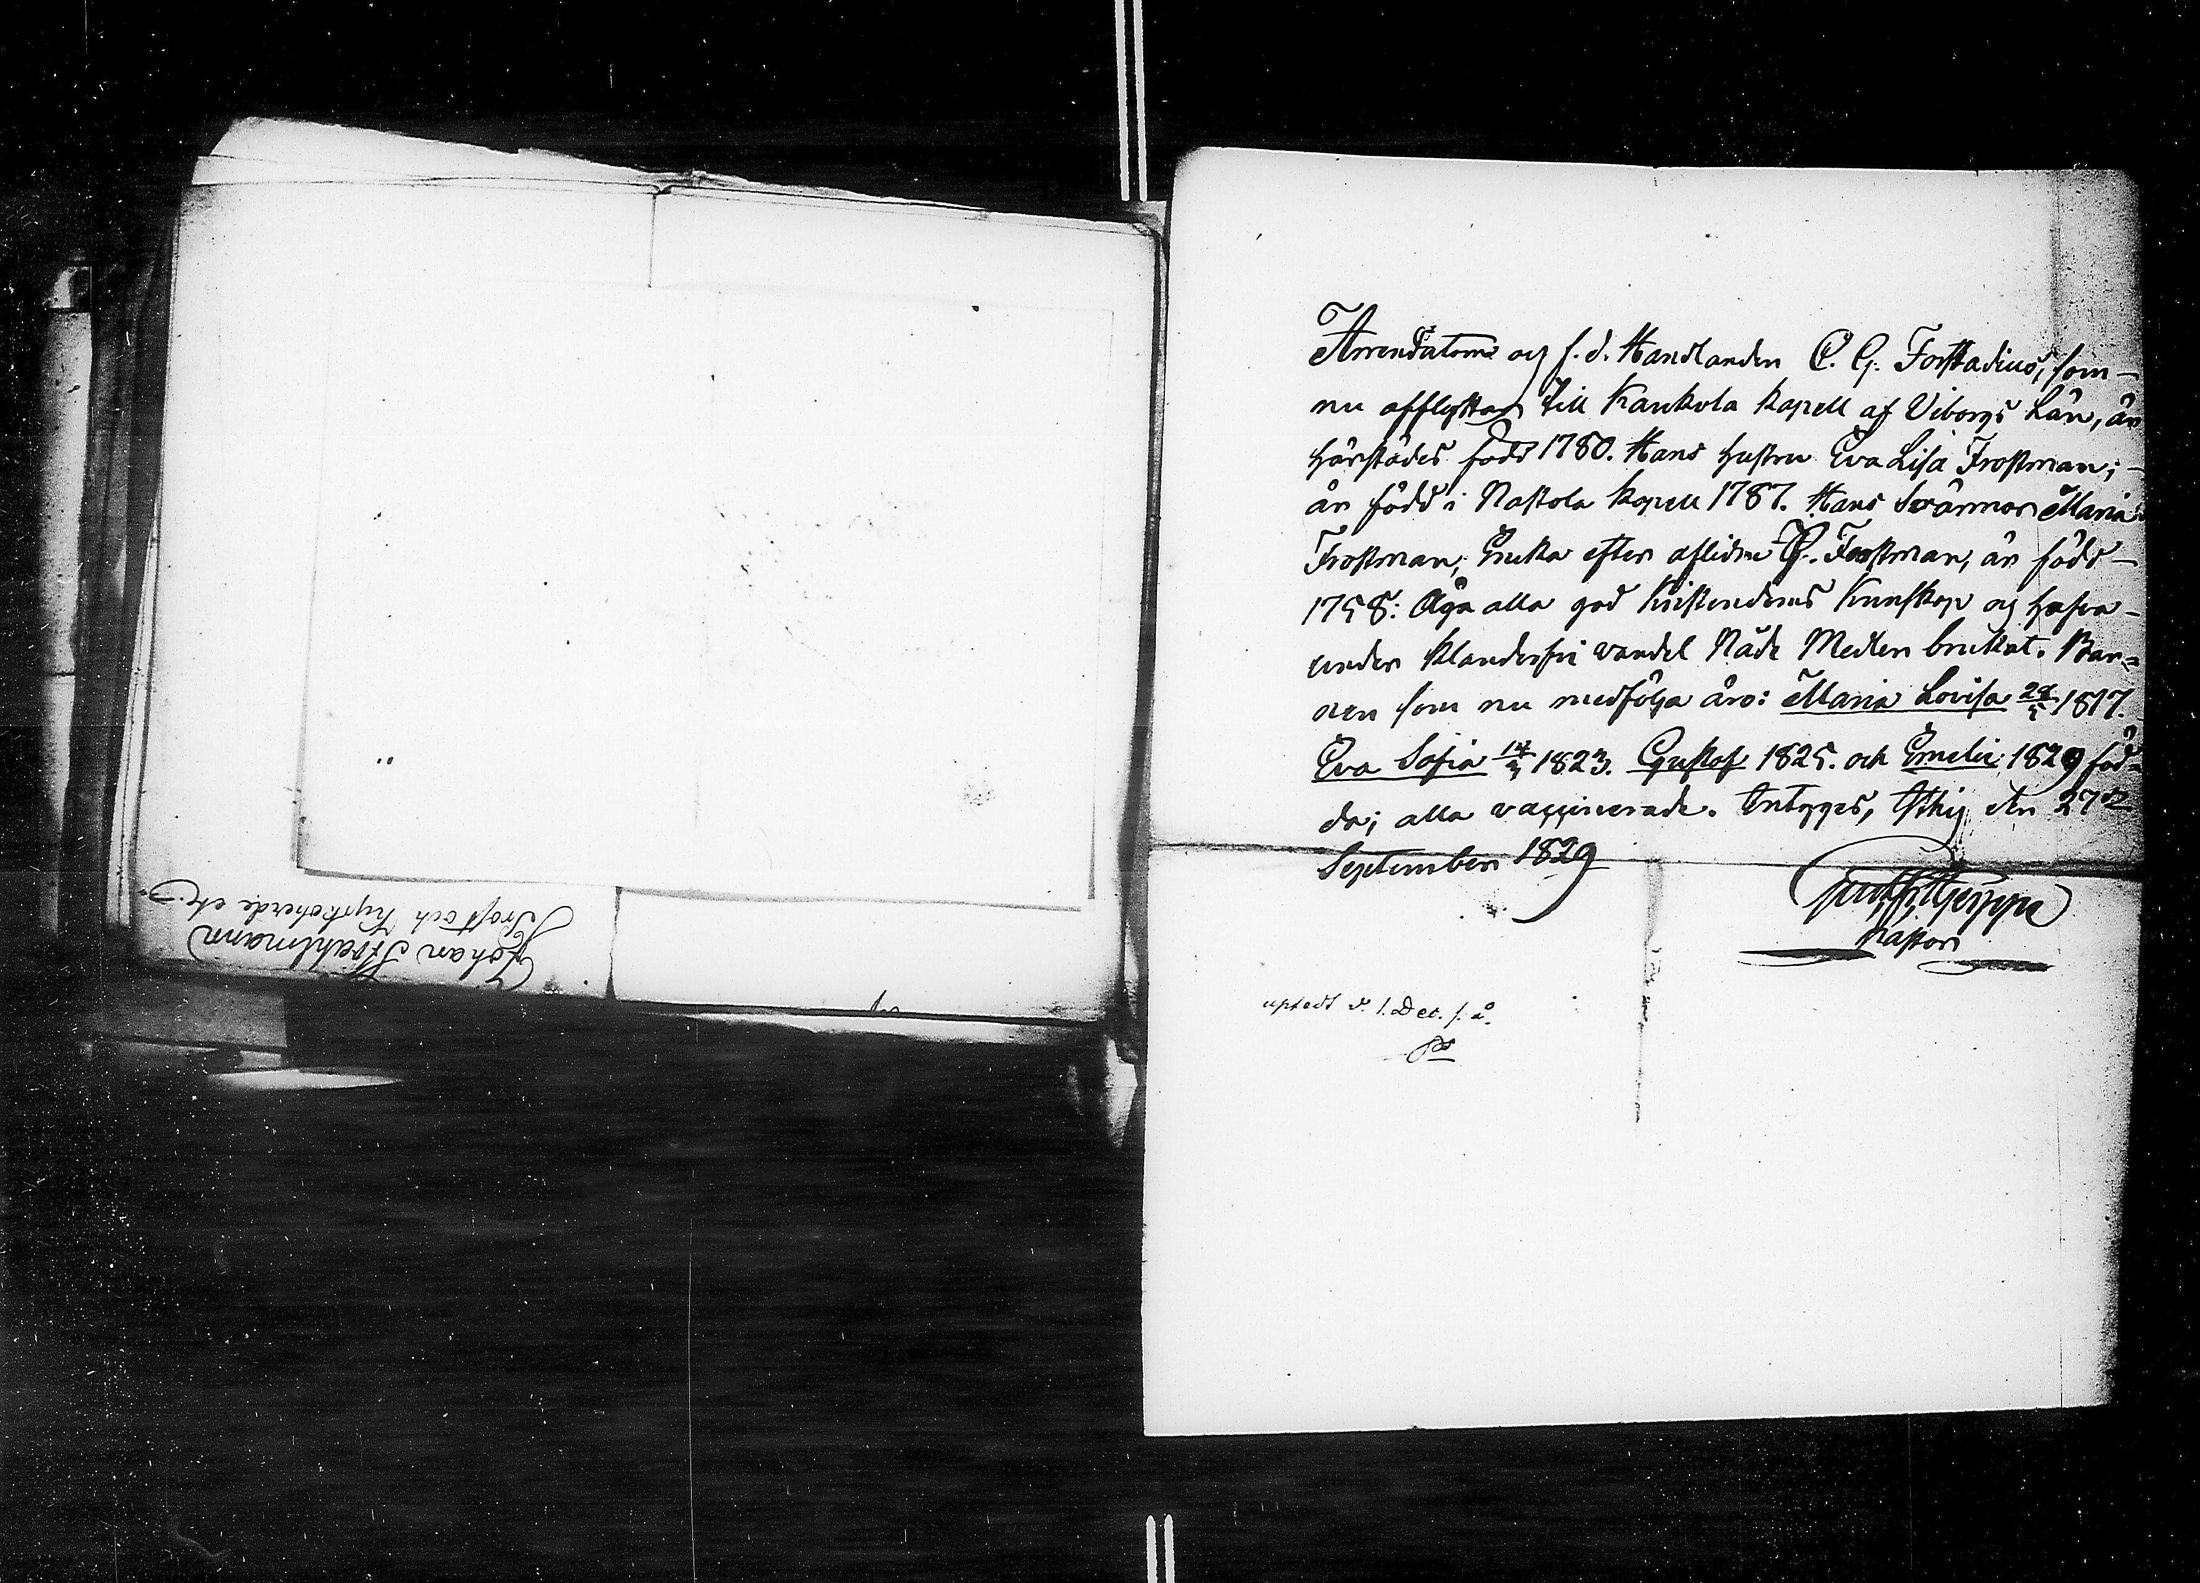 Johan Strahlmann
Prost och Kyrkoherde etc.
Arrendatorn och f. d. Handlanden C. G. Forstadius, som
nu afflyttar till Kaukola kapell af Viborgs Län, är
härstädes född 1780. Hans hustru Eva Lisa Frostman;
är född i Nastola kapell 1787. Hans Svärmor Maria
Frostman, Enka efter aflidne Frostman, är född
1758: Äga alla god Kristendoms Kunskap och hafva
under klanderfri vandel Nåde Medlen brukat. Bar=
nen som nu medfölja äro: Maria Lovisa 1817.
Eva Sofia 14/3 1823. Gustaf 1825. och Emelie 1829 föd=
da; alla vaccinerade. Intygges, den 27
September 1829
Pastor
d. 1. Dec. s. å.